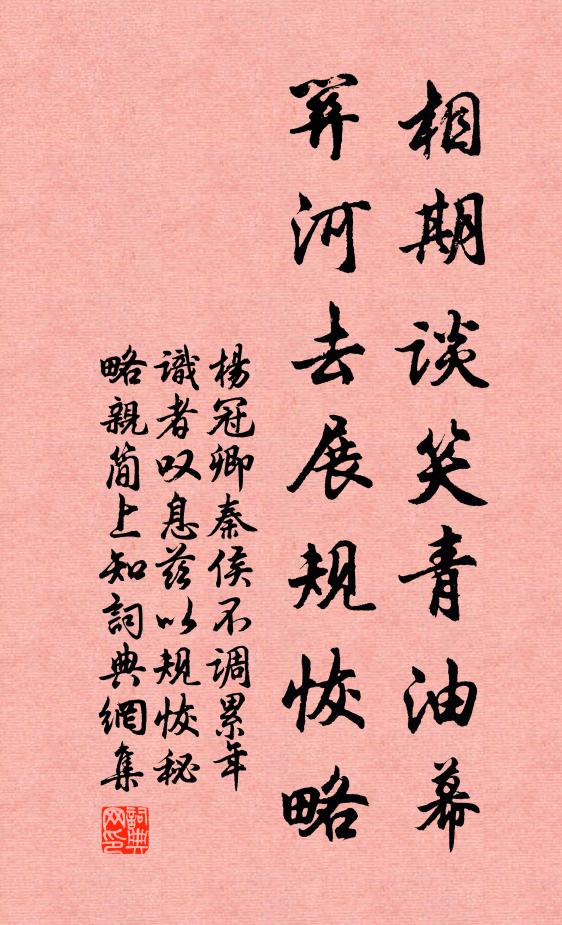 相期谈笑青油幕
河去展規恢略
楊冠卿秦侯不调累年
識者叹息茲以規恢秘
略親简上知詞典網集
詞典
网印